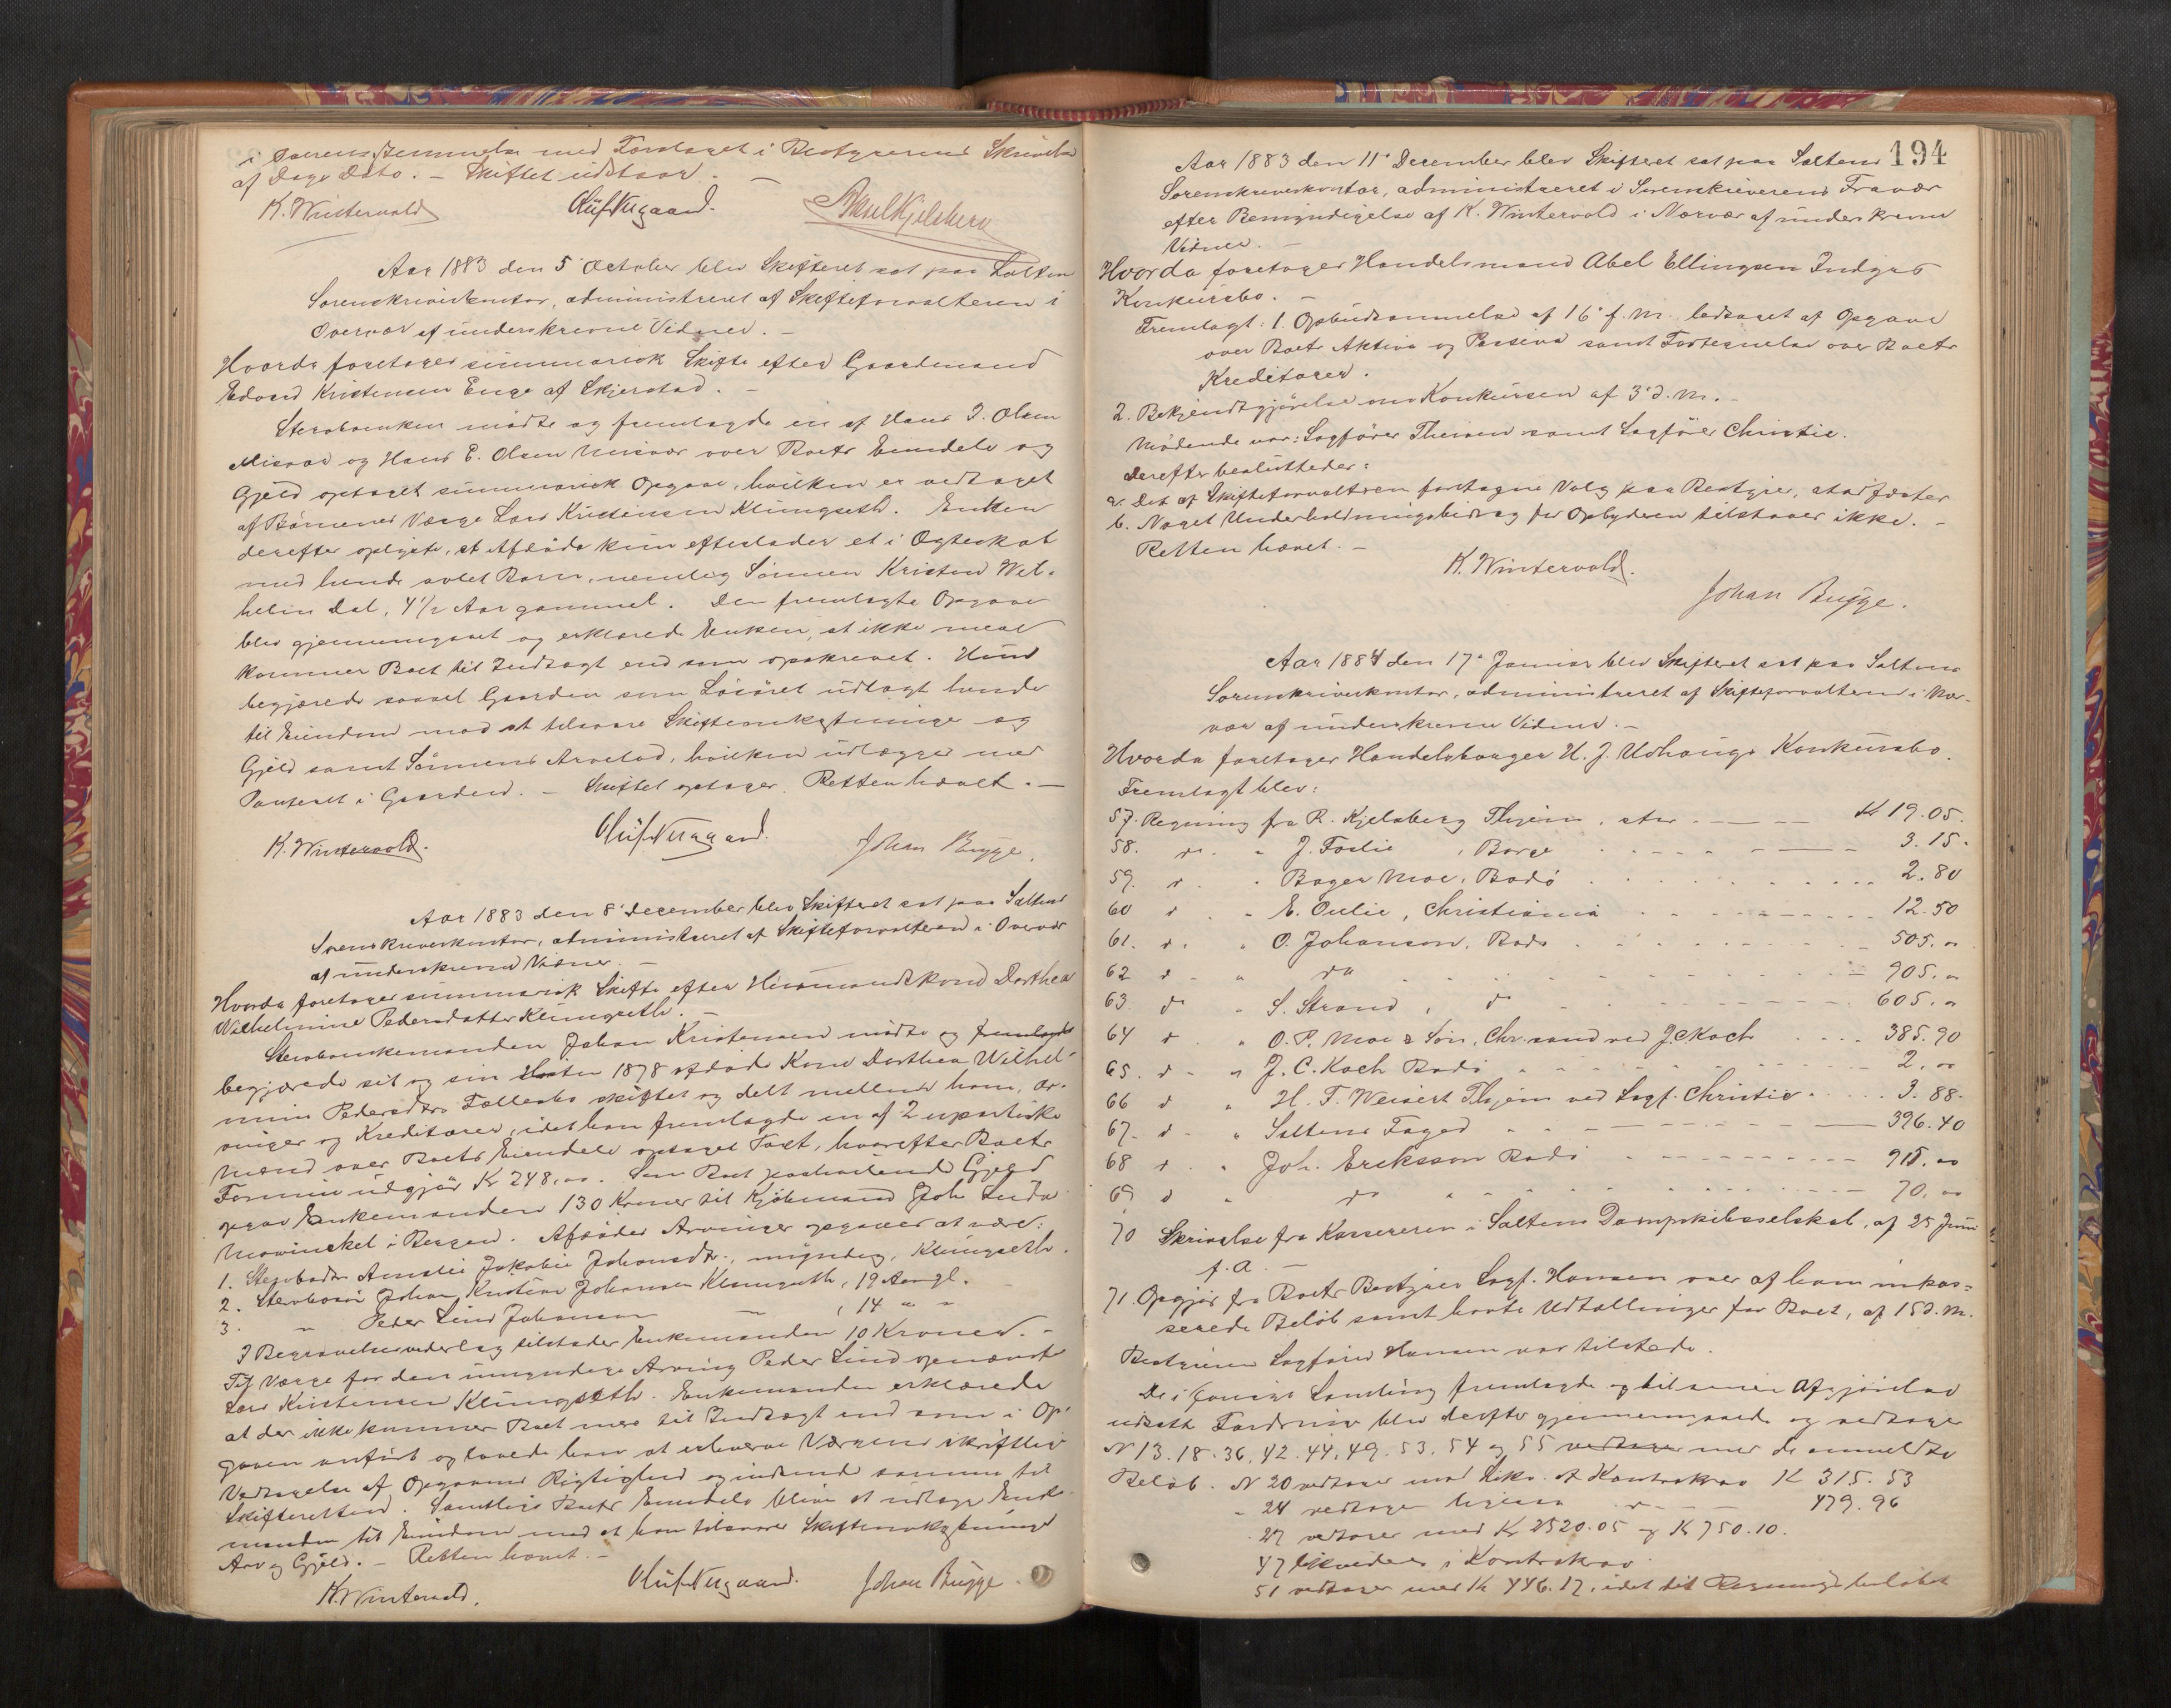 i Overensstemmelse med Forslaget i Bestyrerens Skrivelse
af Dags Dato. – Skiftet udstaar. –
K. Wintervold Oluf Aagaard. Axel Kjelsberg
Aar 1883 den 5' October blev Skifteret sat paa Salten
Sorenskriverkontor, administreret af Skifteforvalteren i
Overvær af underskrevne Vidner. –
Hvorda foretoges summarisk Skifte efter Gaardmand
Edvard Kristensen Enge af Skjerstad. –
Sterboenken mødte og fremlagde en af Hans J. Olsen
Misvær og Hans E. Olsen Misvær over Boets Eiendele og
Gjeld optaget summarisk Opgave, hvilken er vedtaget
af Børnenes Værge Lars Kristensen Klungseth. Enken
derefter oplyste, at Afdøde kun efterlader et i Ægteskab
med hende avlet Barn, nemlig Sønnen Kristen Wil-
helm Dal, 4 1/2 Aar gammel. Den fremlagte Opgave
blev gjennemgaaet og erklærede Enken, at ikke mere
kommer Boet til Indtægt end som opskrevet. Hun
begjærede saavel Gaarden som Løsøret udlagt hende
til Eiendom mod at tilsvare Skifteomkostninger og
Gjeld samt Sønnens Arvelod, hvilken udlægges med
Panteret i Gaarden. – Skiftet optages. Retten hævet. –
K. Wintervold. Oluf Aagaard. Johan Bugge.
Aar 1883 den 8' December blev Skifteret sat paa Saltens
Sorenskriverkontor, administreret af Skifteforvalteren i Overvær
af underskrevne Vidner. –
Hvorda foretoges summarisk Skifte efter Huusmandskone Dorthea
Wilhelmine Pedersdatter Klungseth. –
Sterboenkemanden Johan Kristensen mødte og fremlagde
begjærede sit og sin Høsten 1878 afdøde Kone Dorthea Wilhel-
mine Pedersdtrs Fællesbo skiftet og delt mellem ham, Ar-
vinger og Kreditorer, idet han fremlagde en af 2 upartiske
Mænd over Boets Eiendele optaget Taxt, hvorefter Boets
Formue udgjør Kr 248,00. Som Boet paahvilende Gjeld
opgav Enkemanden 130 Kroner til Kjøbmand Joh Lude
Mowinckel i Bergen. Afdødes Arvinger opgaves at være:
1. Sterbodtr Amalie Jakobie Johansdtr., myndig, Klungseth.
2. Sterbosøn Johan Kristian Johansen Klungseth, 19 Aar gl.
3. " Peder Lind Johansen – , 14 " "
I Begravelsesvederlag tilstodes Enkemanden 10 Kroner. –
Til Værge for den umyndige Arving Peder Lind opnævnte
Lars Kristensen Klungseth. Enkemanden erklærede
at der ikke kommer Boet mere til Indtægt end som i Op-
gaven anført og lovede han at erhverve Værgens skriftlige
Vedtagelse af Opgavens Rigtighed og indsende samme til
Skifteretten. Samtlige Boets Eiendele bliver at udlægge Enke-
manden til Eiendom mod at han tilsvarer Skifteomkostninger
Arv og Gjeld. – Retten hævet. –
K. Wintervold. Oluf Aagaard. Johan Bugge.
194
Aar 1883 den 11' December blev Skifteret sat paa Saltens
Sorenskriverkontor, administreret i Sorenskriverens Fravær
efter Bemyndigelse af K. Wintervold i Nærvær af underskrevne
Vidner. –
Hvorda foretoges Handelsmand Abel Ellingsen Indyrs
Konkursbo. –
Fremlagt: 1. Opbudsanmelse af 16' f. M. ledsaget af Opgave
over Boets Aktiva og Passiva samt Fortegnelse over Boets
Kreditorer.
2. Bekjendtgjørelse om Konkursen af 3' d. M. –
Mødende var: Sagfører Thesen samt Sagfører Christie.
Derefter besluttedes:
a. Det af Skifteforvalteren foretagne Valg paa Bestyrer, stadfæstes
b. Noget Underholdningsbidrag for Opbyderen tilstaaes ikke. –
Retten hævet. –
K. Wintervold.
Johan Bugge.
Aar 1884 den 17' Januar blev Skifteret sat paa Saltens
Sorenskriverkontor, administreret af Skifteforvalteren i Nær-
vær af underskrevne Vidner. –
Hvorda foretoges Handelsborger H. J. Udhaugs Konkursbo.
Fremlagt blev:
57. Regning fra R. Kjelsberg Thjem, stor – – – Kr 19.05.
58. do. " J. Foslie , Borge – – – 3.15.
59. d " Bager Moe, Bodø . . . 2.80
60 d " E. Oulie, Christiania . . . 12.50
61. d. " O. Johanson, Bodø . . . 505. "
62 d " do . . . 905. "
63. do " S. Strand , do – – – 605. "
64 d " O. P. Moe & Søn, Chr.sand ved J. C Koch . . . 385.90
65. d " J. C. Koch Bodø – – – 2. "
66 d " H. F. Weisert Thjem ved Sagf. Christie . . . 3.88.
67. d " Saltens Foged – – – 396.40
68 d. " Joh. Eriksson Bodø – – – 915. "
69 d " do " – – – 70. "
70 Skrivelse fra Kassereren i Saltens Dampskibsselskab, af 25 Juni
f. A. –
71. Opgjør fra Boets Bestyrer Sagf. Hansen over af ham inkas-
serede Beløb samt havte Udtællinger for Boet, af 15 d. M.
Bestyreren Sagfører Hansen var tilstede.
De i forrige Samling fremlagde og til senere Afgjørelse
udsatte Fordringer blev derefter gjennemgaaede og vedtoges
N 13. 18. 36, 42. 44, 49. 53. 54 og 55 vedtoges med de anmeldte
Beløb. N 20 vedtoges med Kr 315.53
" 24 vedtoges ligesaa d – – 479.96
27 vedtoges med Kr 2520.05 og Kr 750.10.
47 likvideres i Kontrakrav
51 vedtoges med Kr 446.17, idet Regningsbeløbet